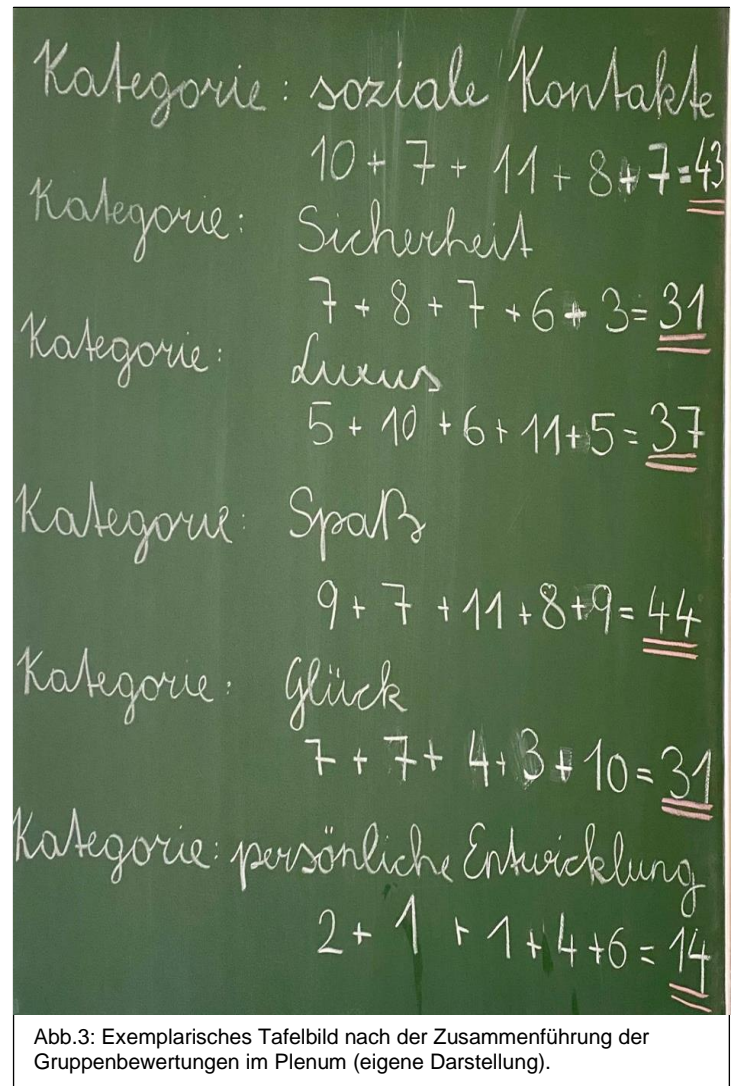 Kategorie: soziale Kontakte
10 + 7 + 11 + 8 + 7 = 43
Kategorie: Sicherheit
7 + 8 + 7 + 6 + 3 = 31
Kategorie: Luxus
5 + 10 + 6 + 11 + 5 = 37
Kategorie: Spaß
9 + 7 + 11 + 8 + 9 = 44
Kategorie: Glück
7 + 7 + 4 + 3 + 10 = 31
Kategorie: persönliche Entwicklung
2 + 1 + 1 + 4 + 6 = 14
Abb.3: Exemplarisches Tafelbild nach der Zusammenführung der
Gruppenbewertungen im Plenum (eigene Darstellung).